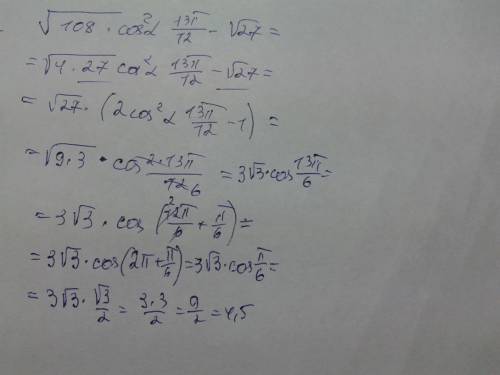 √108 · cos²α 13π/12 − √27 =
= √4·27 cos²α 13π/12 − √27 =
= √27 · (2cos²α 13π/12 − 1) =
= √9·3 · cos 2·13π/12 6 = 3√3 · cos 13π/6 =
= 3√3 · cos (2 12π/6 + π/6) =
= 3√3 · cos (2π + π/6) = 3√3 · cos π/6 =
= 3√3 · √3/2 = 3·3/2 = 9/2 = 4,5